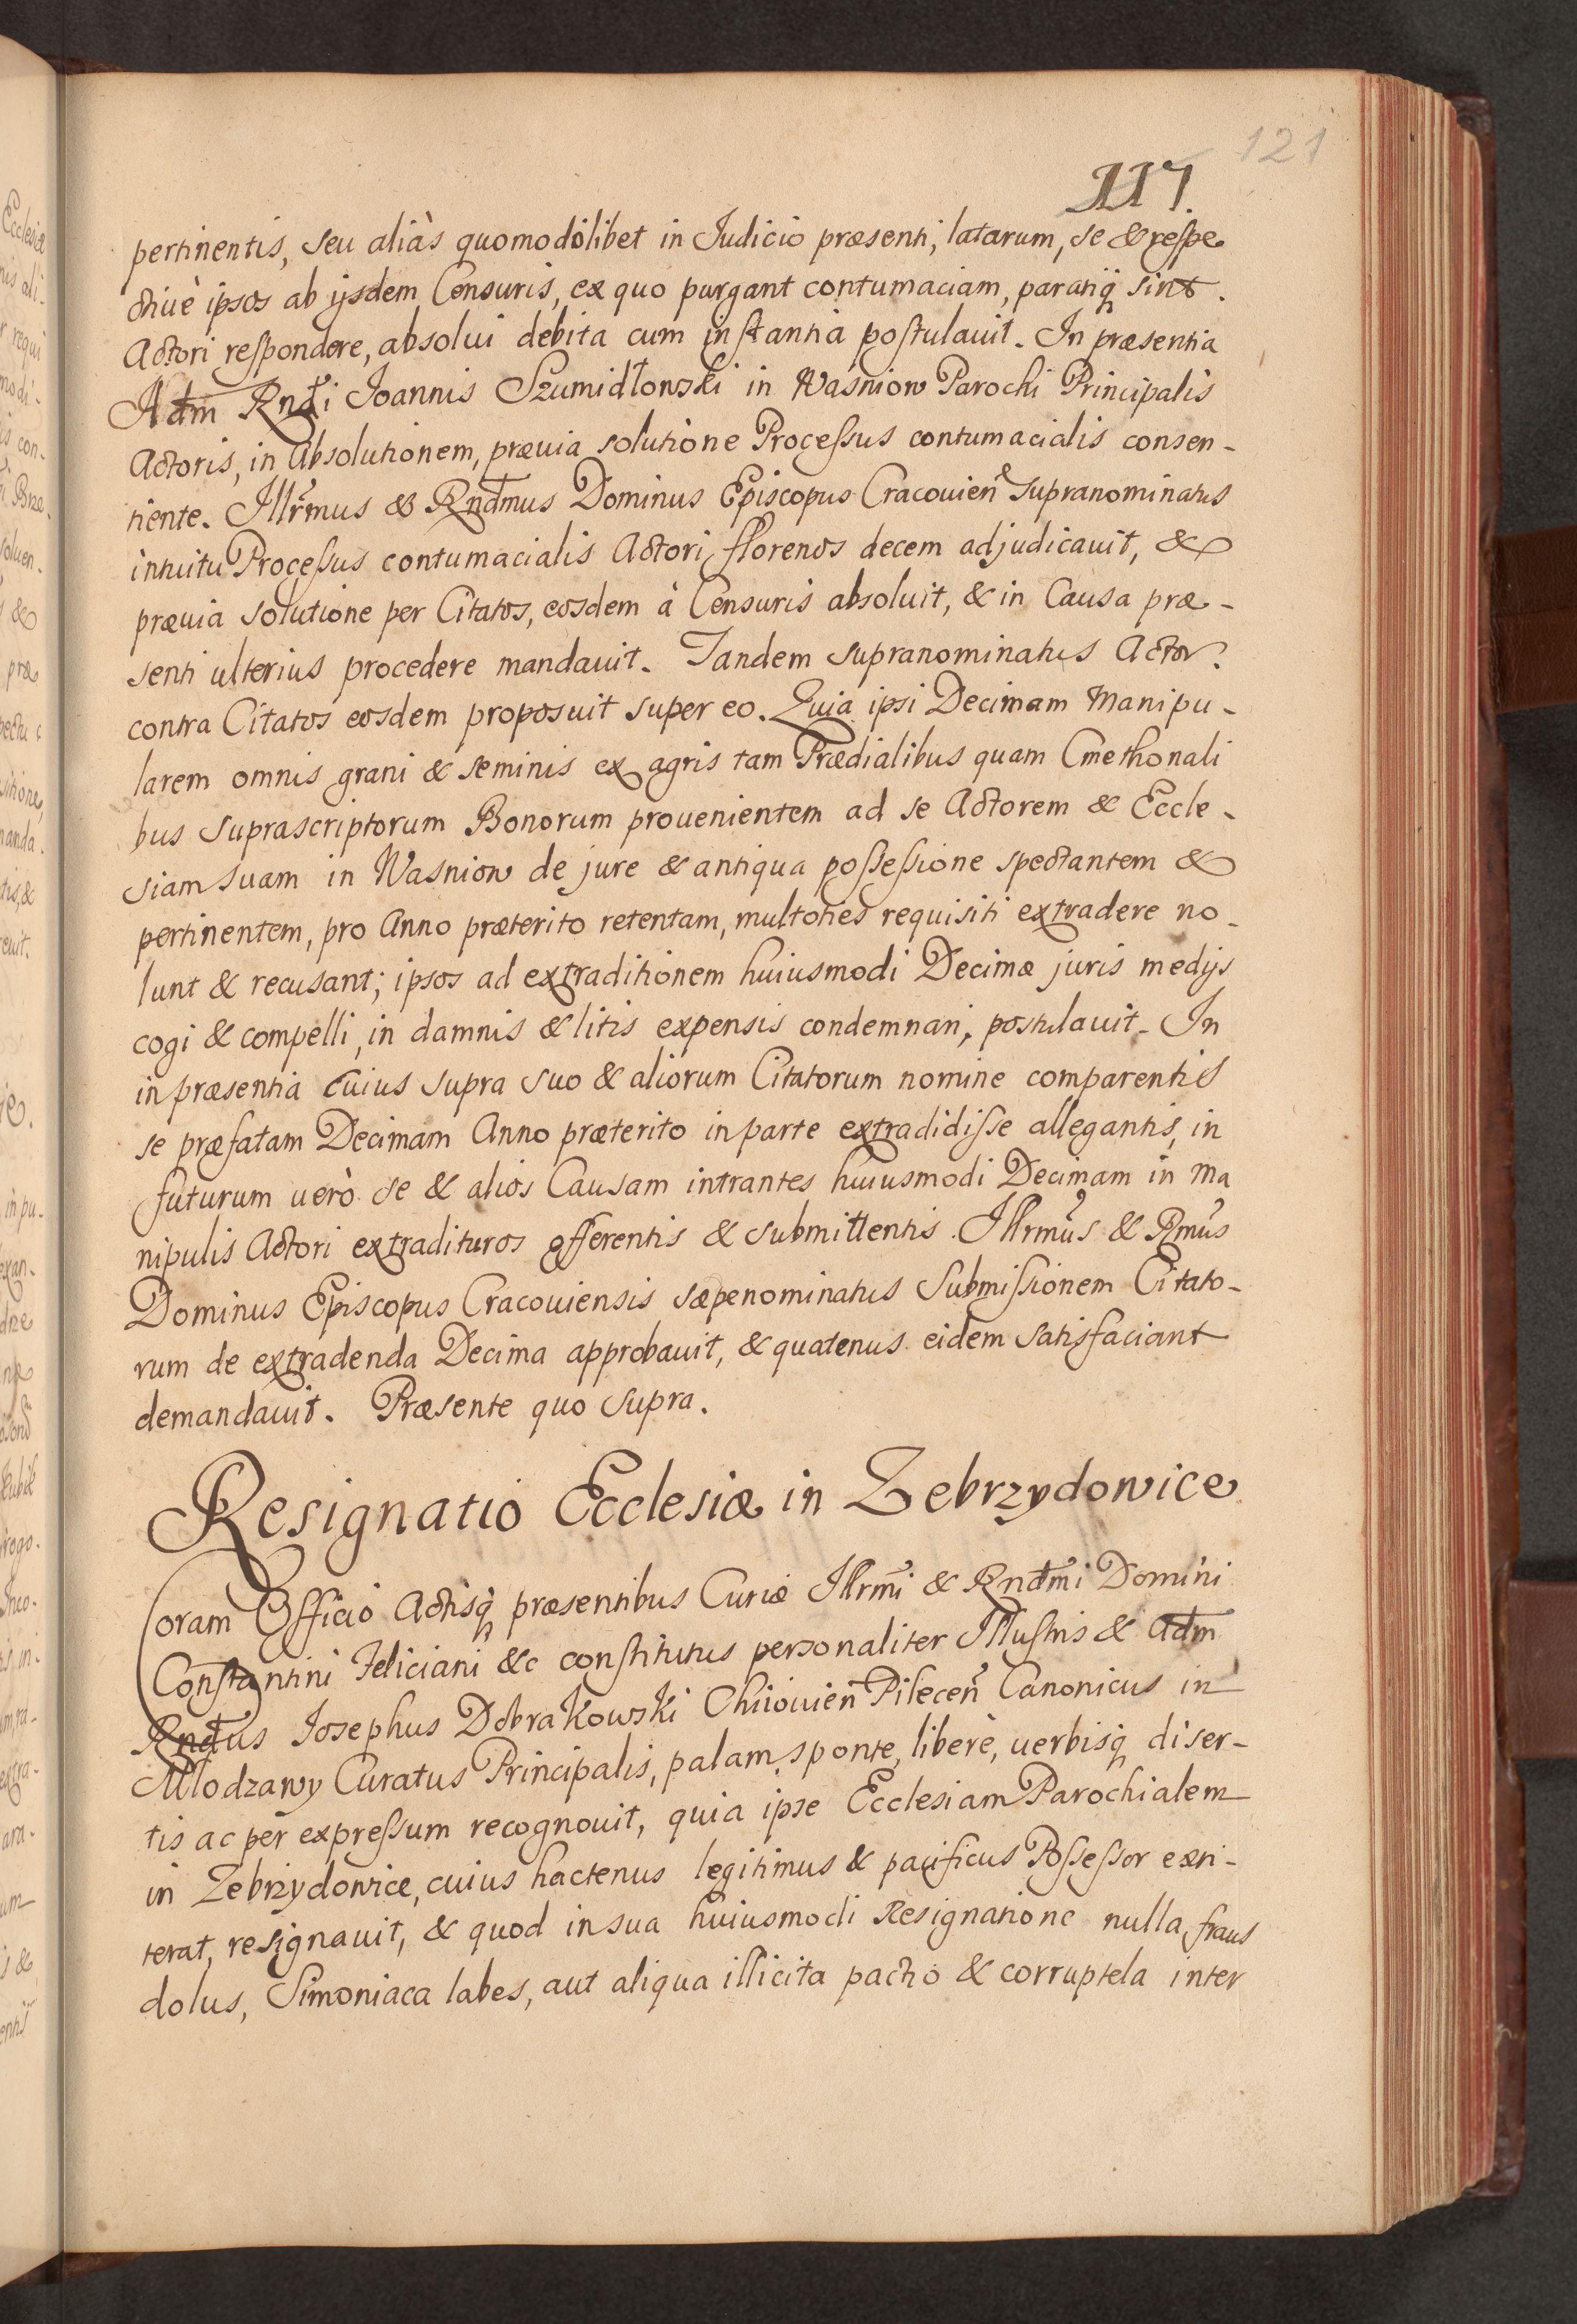 121
117.
pertinentis, seu aliàs quomodolibet in Judicio præsenti, latarum, se & respe
ctiuè ipsos ab ijsdem Censuris, ex quo purgant contumaciam, paratiq̃ sint.
Actori respondere, absolui debita cum instantia postulauit. In præsentia
Adm̃ Rndi Joannis Szumidłowski in Wasniow Parochi Principalis
Actoris, in Absolutionem, præuia solutione Processus contumacialis consen-
tiente. Illr̃mus & Rndmus Dominus Episcopus Cracouien̄ supranominatus
intuitu Processus contumacialis Actori florenos decem adjudicauit, &
præuia solutione per Citatos, eosdem à Censuris absoluit, & in Causa præ-
senti ulterius procedere mandauit. Tandem supranominatus Actor
contra Citatos eosdem proposuit super eo. Quia ipsi Decimam Manipu-
larem omnis grani & seminis ex agris tam Prædialibus quam Cmethonali
bus suprascriptorum Bonorum prouenientem ad se Actorem & Eccle-
siam suam in Wasniow de jure & antiqua possessione spectantem &
pertinentem, pro Anno præterito retentam, multoties requisiti extradere no-
lunt & recusant; ipsos ad extraditionem huiusmodi Decimæ juris medijs
cogi & compelli, in damnis & litis expensis condemnari, postulauit. In
in præsentia cuius supra suo & aliorum Citatorum nomine comparentis
se præfatam Decimam Anno præterito in parte extradidisse allegantis, in
futurum uerò se & alios Causam intrantes huiusmodi Decimam in Ma
nipulis Actori extradituros offerentis & submittentis. Illrmus & Rmus
Dominus Episcopus Cracouiensis sæpenominatus Submissionem Citato-
rum de extradenda Decima approbauit, & quatenus eidem satisfaciant
demandauit. Præsente quo supra.
Resignatio Ecclesiæ in Zebrzydowice
Coram Officio Actisq̃ præsentibus Curiæ Illrm̃i & Rndm̃i Domini
Constantini Feliciani &c constitutus personaliter Illustris & Adm̃
Rndus Josephus Dobrakowski Chiiouien̄ Pilecen̄ Canonicus in
Mlodzawy Curatus Principalis, palam, sponte, liberè, uerbisq̃ diser-
tis ac per expressum recognouit, quia ipse Ecclesiam Parochialem
in Zebrzydowice, cuius hactenus legitimus & pacificus Possessor exti-
terat, resignauit, & quod in sua huiusmodi Resignatione nulla fraus
dolus, Simoniaca labes, aut aliqua illicita pactio & corruptela inter